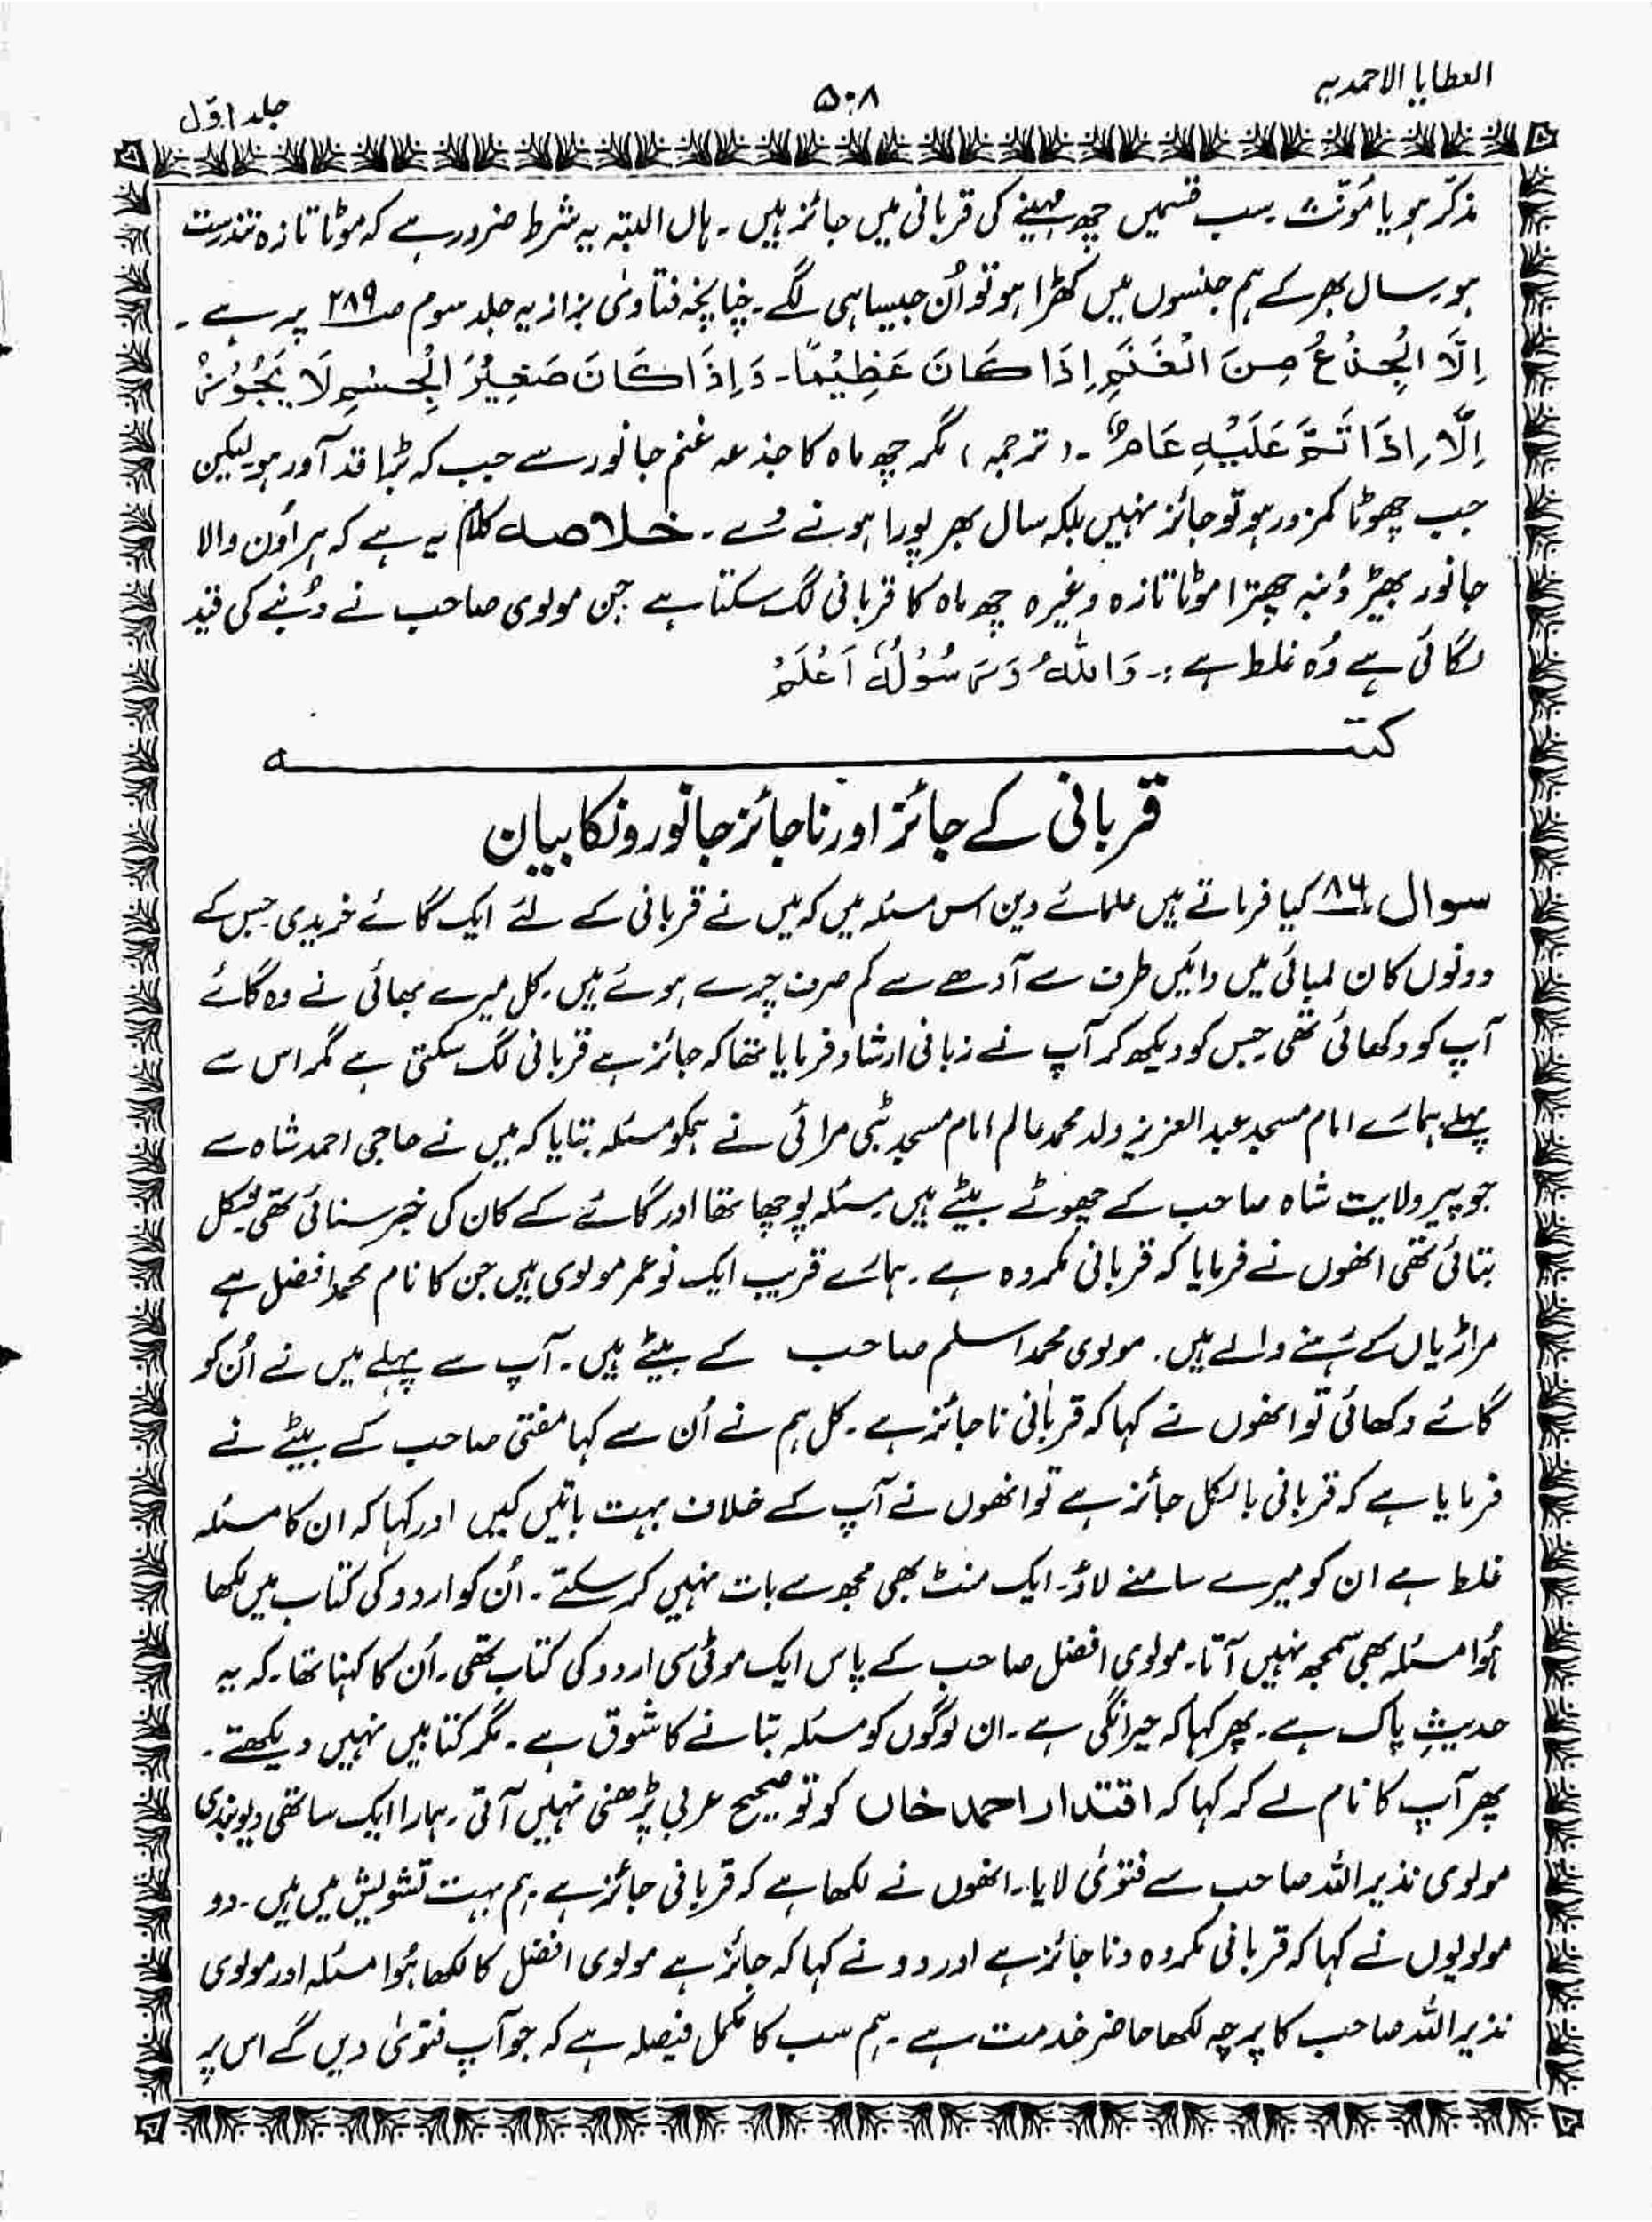 العطایا الاحمدیہ
۵۰۸
جلد اوّل
مذکّر ہو یا مُونّث۔ سب قسمیں چھ مہینے کی قربانی میں جائز ہیں۔ ہاں البتہ یہ شرط ضرور ہے کہ موٹا تازہ تندرست
ہو۔ سال بھر کے ہم جنسوں میں کھڑا ہو تو اُن جیسا ہی لگے۔ چنانچہ فتاویٰ بزازیہ جلد سوم صـ ۲۸۹ پر ہے۔
اِلَّا الْجِذْعُ مِنَ الْغَنَمِ اِذَا كَانَ عَظِيْمًا۔ وَ اِذَا كَانَ صَغِيْرُ الْجِسْمِ لَا يَجُوْزُ
اِلَّا اِذَا تَمَّ عَلَيْهِ عَامٌ۔ (ترجمہ) مگر چھ ماہ کا جذعہ غنم جانور سے جب کہ بڑا قد آور ہو لیکن
جب چھوٹا کمزور ہو تو جائز نہیں بلکہ سال بھر پورا ہونے دے۔ خلاصہ کلام یہ ہے کہ ہر اُون والا
جانور بھیڑ دُنبہ چھترا موٹا تازہ وغیرہ چھ ماہ کا قربانی لگ سکتا ہے جن مولوی صاحب نے دُنبے کی قید
لگائی ہے وُہ غلط ہے :۔ وَاللّٰهُ وَرَسُوْلُهٗ اَعْلَمُ
کتبـــــــہ
قربانی کے جائز اور ناجائز جانورونکا بیان
سوال ۸۶ کیا فرماتے ہیں علمائے دین اس مسئلہ میں کہ میں نے قربانی کے لئے ایک گائے خریدی جس کے
دونوں کان لمبائی میں دائیں طرف سے آدھے سے کم صرف چرے ہوئے ہیں۔ کل میرے بھائی نے وہ گائے
آپ کو دکھائی تھی جس کو دیکھ کر آپ نے زبانی ارشاد فرمایا تھا کہ جائز ہے قربانی لگ سکتی ہے مگر اس سے
پہلے ہمارے امام مسجد عبد العزیز ولد محمد عالم امام مسجد ٹبی مرائی نے ہمکو مسئلہ بتایا کہ میں نے حاجی احمد شاہ سے
جو پیر ولایت شاہ صاحب کے چھوٹے بیٹے ہیں مسئلہ پوچھا تھا اور گائے کے کان کی خبر سنائی تھی شکل
بتائی تھی انھوں نے فرمایا کہ قربانی مکروہ ہے۔ ہمارے قریب ایک نو عمر مولوی ہیں جن کا نام محمد افضل ہے
مراڑیاں کے رہنے والے ہیں۔ مولوی محمد اسلم صاحب کے بیٹے ہیں۔ آپ سے پہلے میں نے اُن کو
گائے دکھائی تو انھوں نے کہا کہ قربانی ناجائز ہے۔ کل ہم نے اُن سے کہا مفتی صاحب کے بیٹے نے
فرمایا ہے کہ قربانی بالکل جائز ہے تو انھوں نے آپ کے خلاف بہت باتیں کیں اور کہا کہ ان کا مسئلہ
غلط ہے ان کو میرے سامنے لاؤ۔ ایک منٹ بھی مجھ سے بات نہیں کر سکتے۔ اُن کو اردو کی کتاب میں لکھا
ہُوا مسئلہ بھی سمجھ نہیں آتا۔ مولوی افضل صاحب کے پاس ایک موٹی سی اردو کی کتاب تھی۔ اُن کا کہنا تھا۔ کہ یہ
حدیثِ پاک ہے۔ پھر کہا کہ حیرانگی ہے۔ ان لوگوں کو مسئلہ بتانے کا شوق ہے۔ مگر کتابیں نہیں دیکھتے۔
پھر آپ کا نام لے کر کہا کہ اقتدار احمد خاں کو تو صحیح عربی پڑھنی نہیں آتی۔ ہمارا ایک ساتھی دیوبندی
مولوی نذیر اللہ صاحب سے فتویٰ لایا۔ انھوں نے لکھا ہے کہ قربانی جائز ہے۔ ہم بہت تشویش میں ہیں۔ دو
مولویوں نے کہا کہ قربانی مکروہ و ناجائز ہے اور دو نے کہا کہ جائز ہے مولوی افضل کا لکھا ہُوا مسئلہ اور مولوی
نذیر اللہ صاحب کا پرچہ لکھا حاضر خدمت ہے۔ ہم سب کا مکمل فیصلہ ہے کہ جو آپ فتویٰ دیں گے اس پر